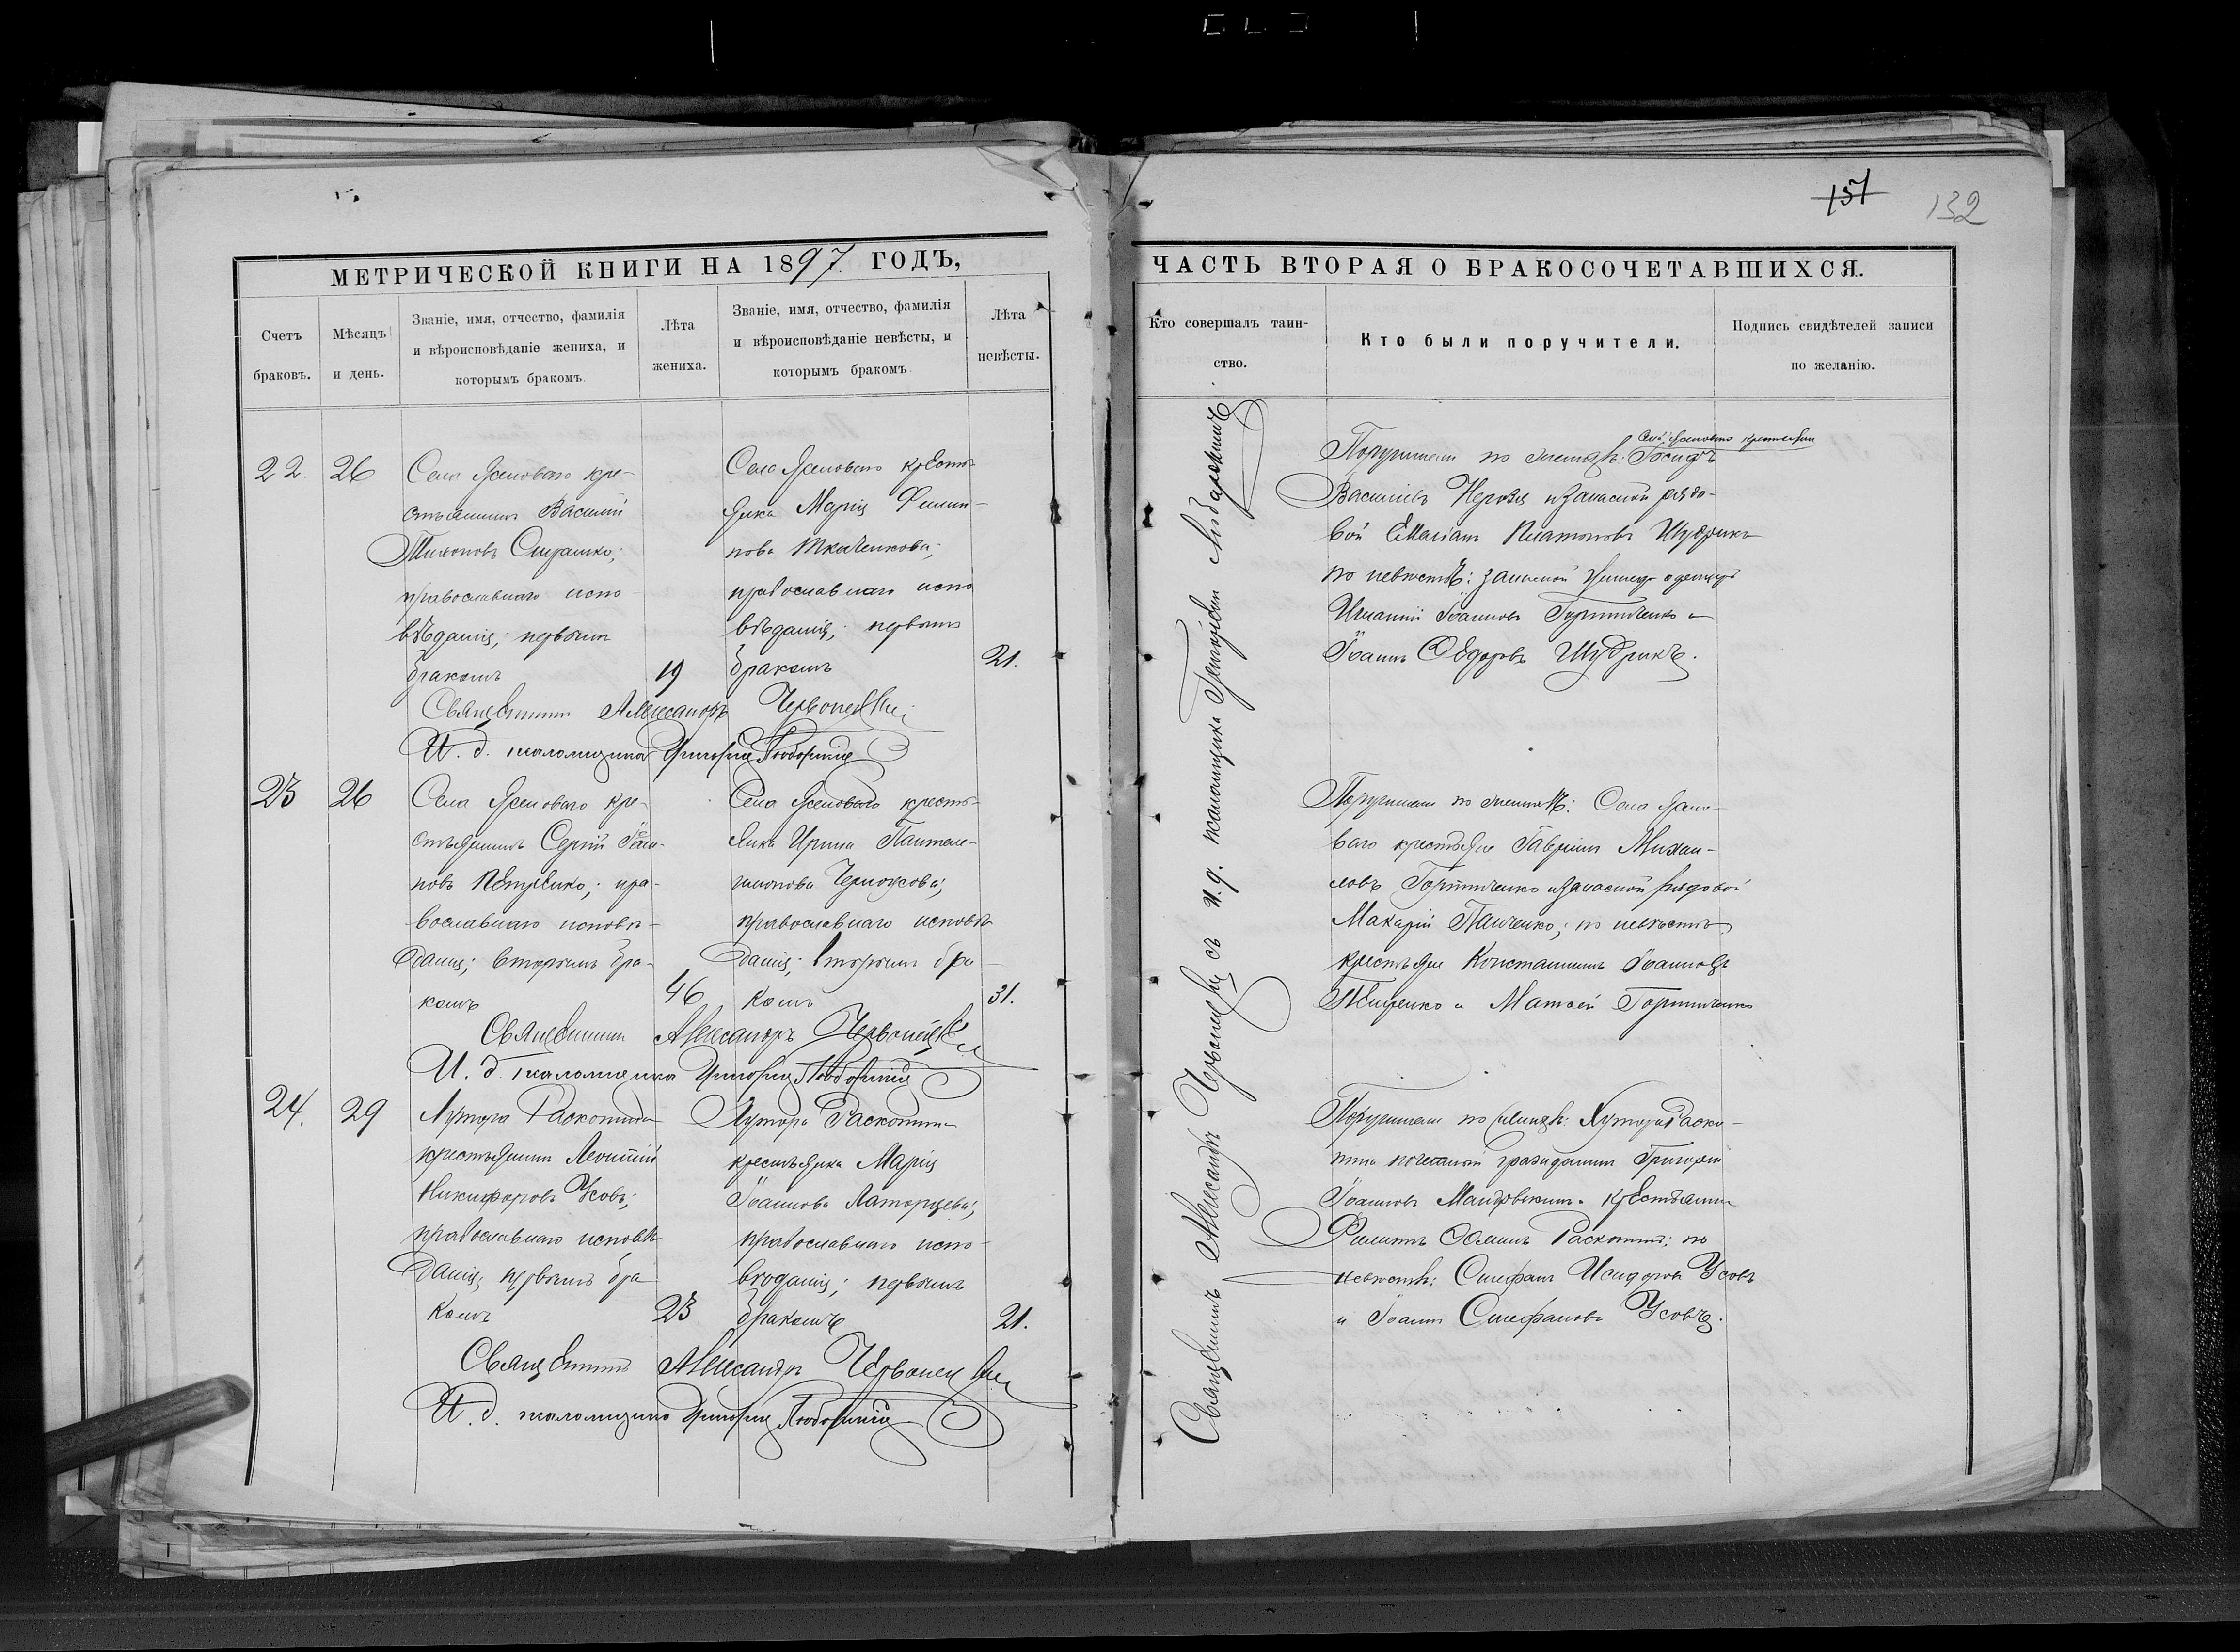 157
132
МЕТРИЧЕСКОЙ КНИГИ НА 1897 ГОДЪ,
Счетъ браковъ.
Мѣсяцъ и день.
Званіе, имя, отчество, фамилія
и вѣроисповѣданіе жениха, и
которымъ бракомъ.
Лѣта жениха.
Званіе, имя, отчество, фамилія
и вѣроисповѣданіе невѣсты, и
которымъ бракомъ.
Лѣта невѣсты.
22. 26
Села Ясеноваго кре-
стьянинъ Василій
Тихоновъ Сиряшко;
православнаго испо-
вѣданія; первымъ
бракомъ
19
Села Ясеноваго кресть-
янка Марія Филип-
пова Ткаченкова;
православнаго испо
вѣданія; первымъ
бракомъ
21.
Священникъ Александръ Червонецкій
И. д. псаломщика Григорій
23 26
Села Ясеноваго кре-
стьянинъ Сергій Іоан-
новъ Петренко; пра-
вославнаго исповѣ-
данія; вторымъ бра-
комъ
46
Села Ясеноваго кресть-
янка Ирина Пантеле-
имонова Черноусова;
православнаго исповѣ
данія; вторымъ бра
комъ
31.
Священникъ Александръ Червонецкій
И. д. псаломщика Григорій
24. 29
Хутора Раскопина
крестьянинъ Леонтій
Никифоровъ Усовъ;
православнаго исповѣ
данія; первымъ бра
комъ
23
Хутора Раскопина
крестьянка Марія
Іоаннова Латорцева;
православнаго испо-
вѣданія; первымъ
бракомъ
21.
Священникъ Александръ Червонецкій
И. д. псаломщика Григорій
ЧАСТЬ ВТОРАЯ О БРАКОСОЧЕТАВШИХСЯ.
Кто совершалъ таин-
ство.
Кто были поручители.
Подпись свидѣтелей записи
по желанію.
Священникъ Александръ Червонецкій съ и. д. псаломщика Григоріемъ
села Ясеноваго крестьянинъ
Поручители по женихѣ: Іосифъ
Васильевъ и запасной рядо-
вой Платоновъ Шубрикъ
по невѣстѣ: запасной
Игнатій Іоанновъ Гортинченко и
Іоаннъ Ѳедоровъ Шубрикъ.
Поручители по женихѣ: Села Ясено-
ваго крестьяне Гавріилъ Михаи-
ловъ Гортинченко и запасной рядовой
Макарій Панченко; по невѣстѣ
крестьяне Константинъ Іоанновъ
и Матѳей Гортинченко
Поручители по женихѣ: Хутора Раско-
пина почетный гражданинъ Григорій
Іоанновъ крестьянинъ
Филиппъ Раскопинъ; по
невѣстѣ: Стефанъ Исидоровъ Усовъ
и Іоаннъ Стефановъ Усовъ.